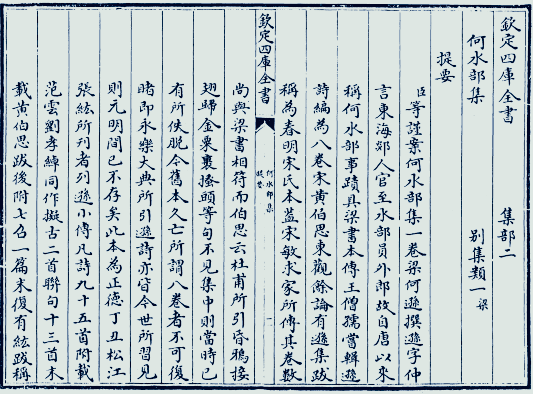 欽定四庫全書　集部二
何水部集　別集類一 梁
提要
臣等謹案何水部集一卷梁何遜撰遜字仲
言東海郯人官至水部員外郎故自唐以來
稱何水部事蹟具梁書本傳王僧孺嘗輯遜
詩編為八卷宋黄伯思東觀餘論有遜集跋
稱為春明宋氏本蓋宋敏求家所傳其卷數
欽定四庫全書
何水部集
提要
一
尚與梁書相符而伯思云杜甫所引昏鴉接
翅歸金粟裹搔頭等句不見集中則當時已
有所佚脱今舊本久亡所謂八卷者不可復
睹即永樂大典所引遜詩亦皆今世所習見
則元明間已不存矣此本為正德丁丑松江
張紘所刊者列遜小傳凡詩九十五首附載
范雲劉孝綽同作擬古二首聯句十三首末
載黄伯思跋後附七召一篇末復有紘跋稱